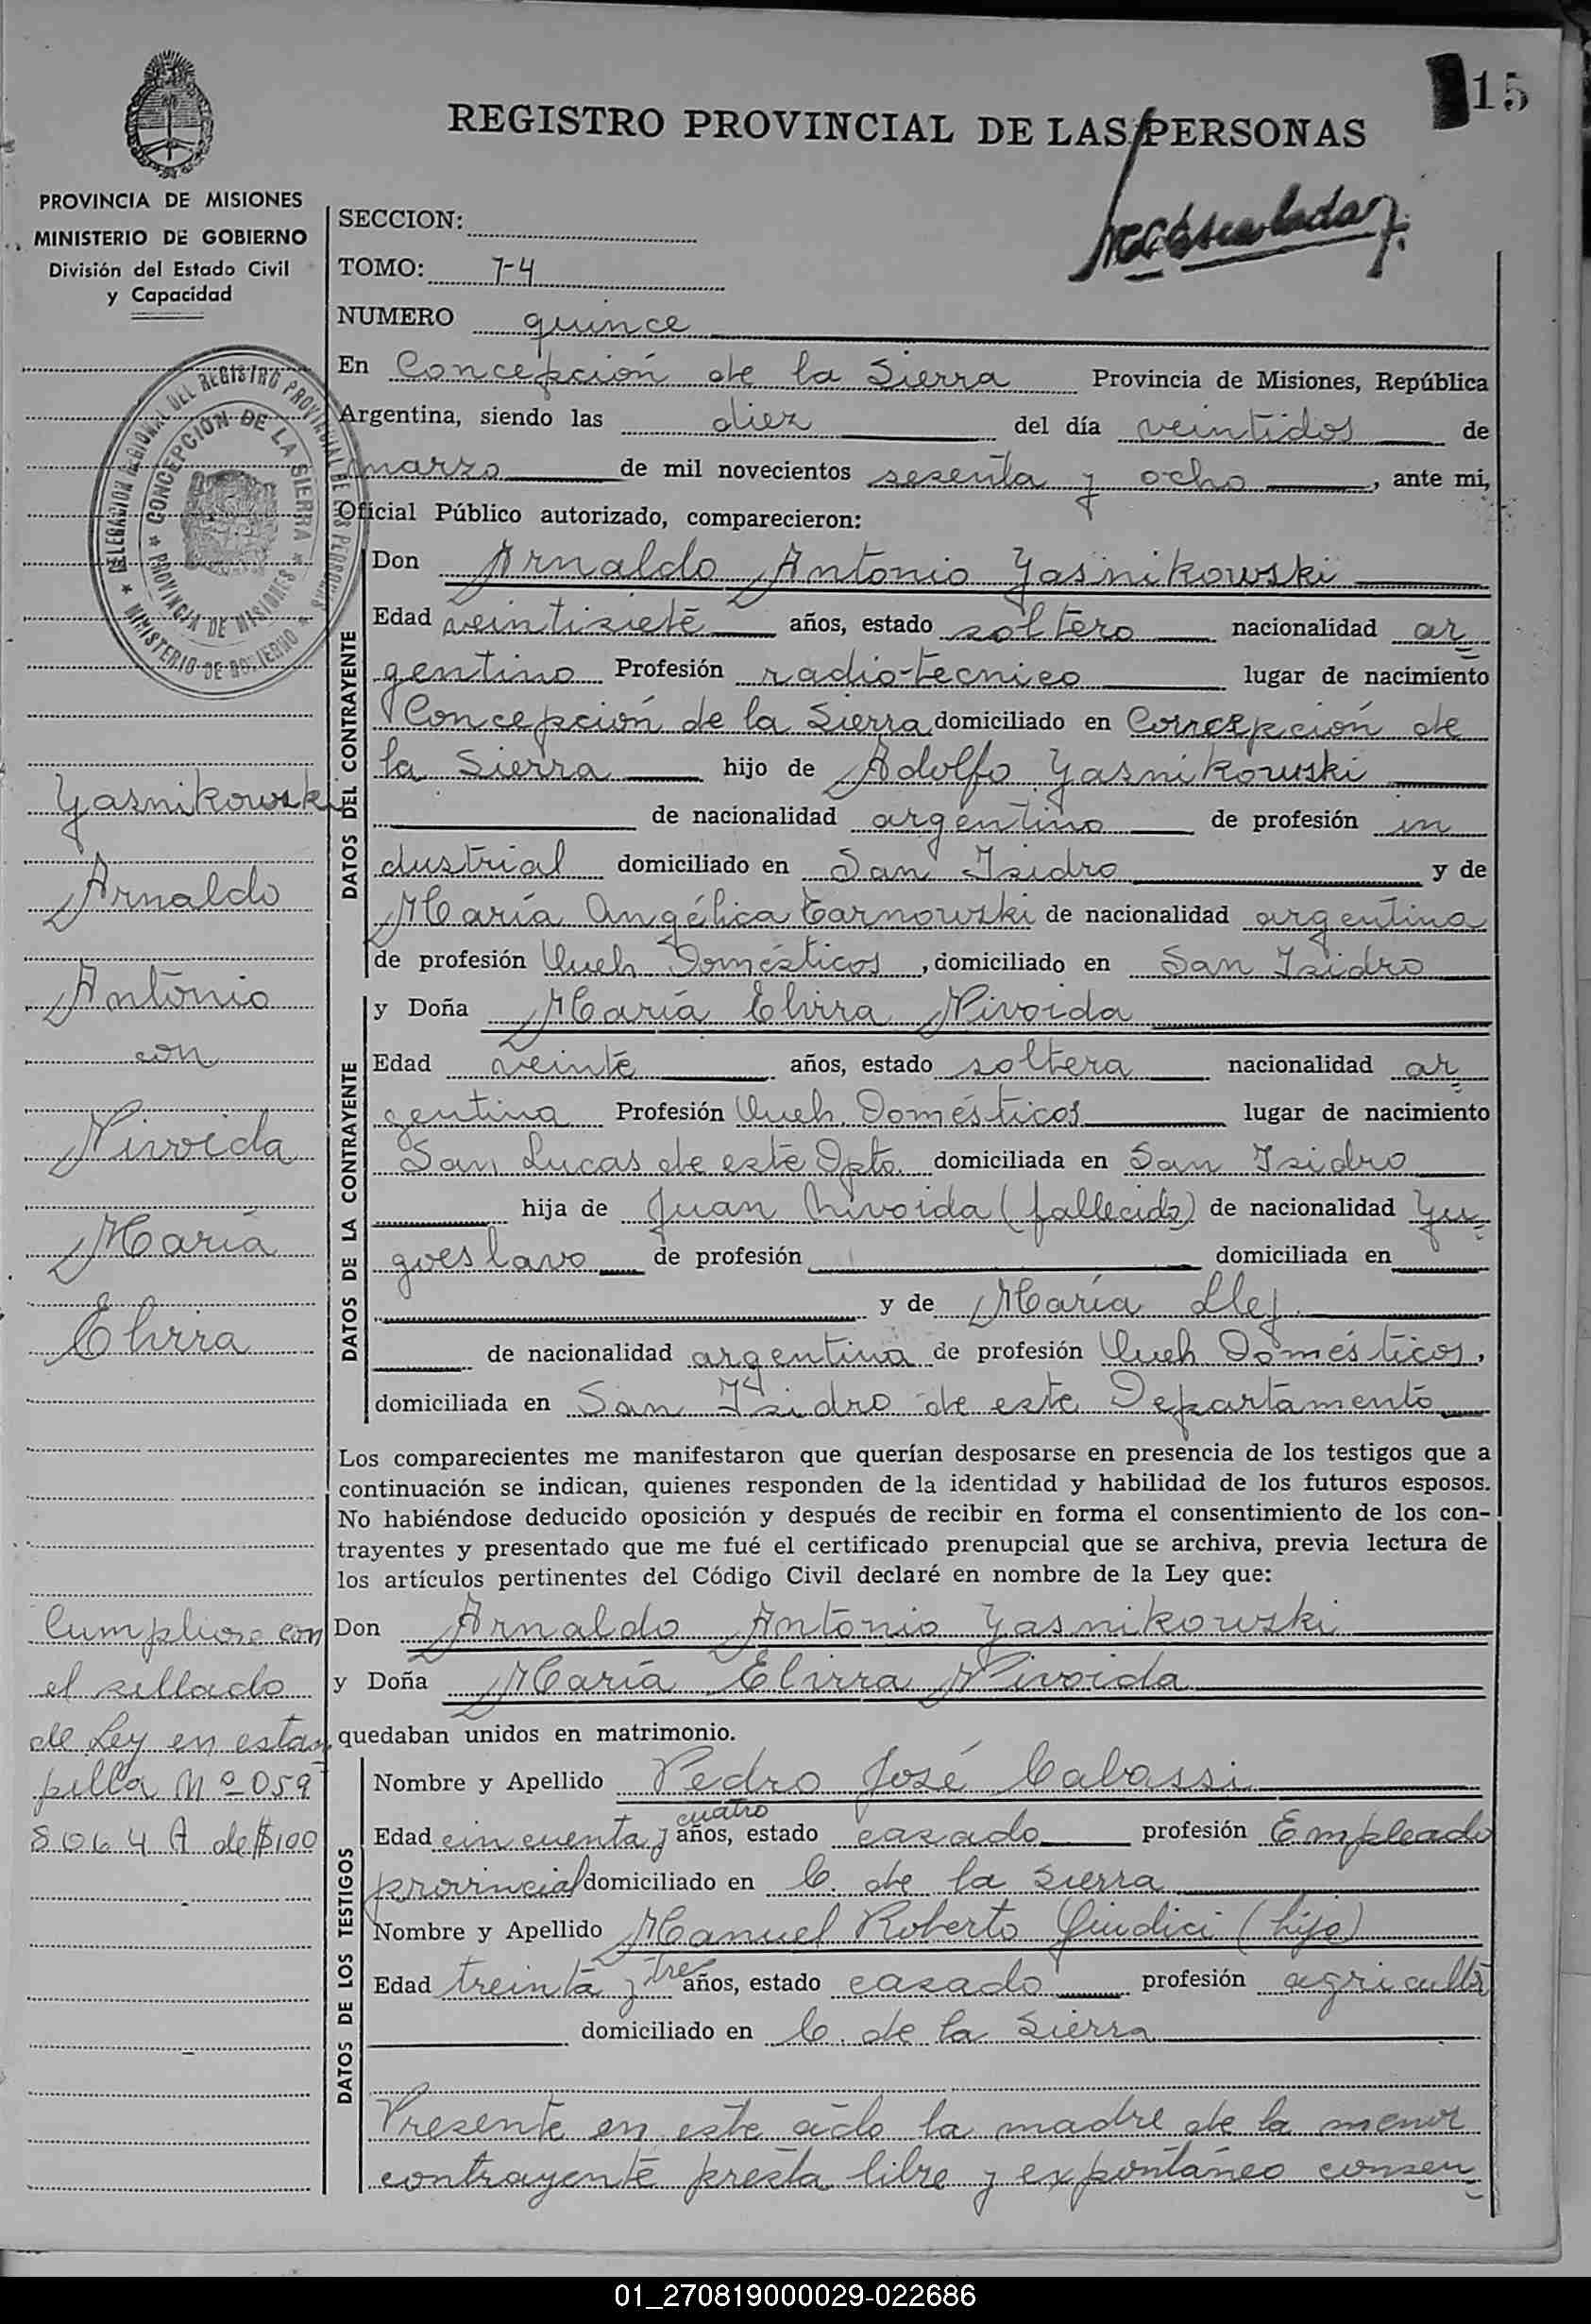 15
REGISTRO PROVINCIAL DE LAS PERSONAS
PROVINCIA DE MISIONES
MINISTERIO DE GOBIERNO
División del Estado Civil
y Capacidad
DELEGACION REGIONAL DEL REGISTRO PROVINCIAL DE LAS PERSONAS
CONCEPCION DE LA SIERRA
PROVINCIA DE MISIONES
MINISTERIO DE GOBIERNO
Yasnikowski
Arnaldo
Antonio
con
Nivoida
María
Elvira
Cumpliose con
el sellado
de Ley en estam
pilla Nº 059
8064 A de $100
SECCION:
TOMO: 7-4
NUMERO quince
En Concepción de la Sierra Provincia de Misiones, República
Argentina, siendo las diez del día veintidos de
marzo de mil novecientos sesenta y ocho, ante mi,
Oficial Público autorizado, comparecieron:
DATOS DEL CONTRAYENTE
Don Arnaldo Antonio Yasnikowski
Edad veintisiete años, estado soltero nacionalidad ar
gentino Profesión radio-tecnico lugar de nacimiento
Concepción de la Sierra domiciliado en Concepción de
la Sierra hijo de Adolfo Yasnikowski
de nacionalidad argentino de profesión in
dustrial domiciliado en San Isidro y de
María Angélica Tarnowski de nacionalidad argentina
de profesión Queh. Domésticos, domiciliado en San Isidro
DATOS DE LA CONTRAYENTE
y Doña María Elvira Nivoida
Edad veinte años, estado soltera nacionalidad ar
gentina Profesión Queh. Domésticos lugar de nacimiento
San Lucas de este Dpto. domiciliada en San Isidro
hija de Juan Nivoida (fallecido) de nacionalidad Yu
goeslavo de profesión domiciliada en
y de María
de nacionalidad argentina de profesión Queh Domésticos,
domiciliada en San Isidro de este Departamento
Los comparecientes me manifestaron que querían desposarse en presencia de los testigos que a
continuación se indican, quienes responden de la identidad y habilidad de los futuros esposos.
No habiéndose deducido oposición y después de recibir en forma el consentimiento de los con-
trayentes y presentado que me fué el certificado prenupcial que se archiva, previa lectura de
los artículos pertinentes del Código Civil declaré en nombre de la Ley que:
Don Arnaldo Antonio Yasnikowski
y Doña María Elvira Nivoida
quedaban unidos en matrimonio.
DATOS DE LOS TESTIGOS
Nombre y Apellido Pedro José Cabassi
Edad cincuenta y cuatro años, estado casado profesión Empleado
provincial domiciliado en C. de la Sierra
Nombre y Apellido Manuel Roberto Giudici (hijo)
Edad treinta y tres años, estado casado profesión agricultor
domiciliado en C. de la Sierra
Presente en este acto la madre de la menor
contrayente presta libre y expontáneo consen
01_270819000029-022686